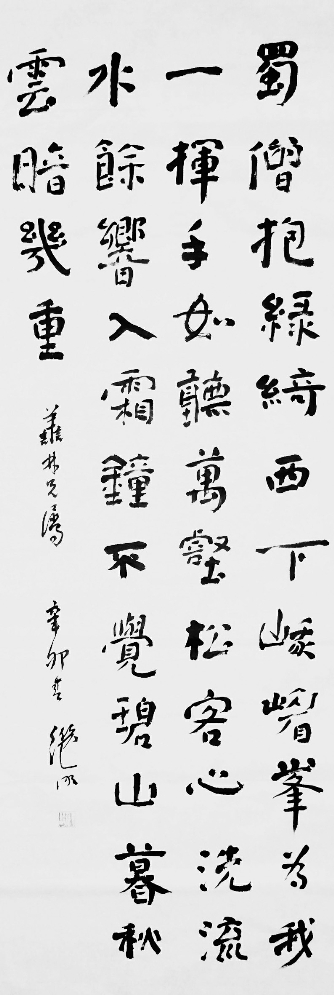 蜀僧抱綠綺西下峨嵋峯為我
一揮手如聽萬壑松客心洗流
水餘響入霜鐘不覺碧山暮秋
雲暗幾重
林兄
辛卯春